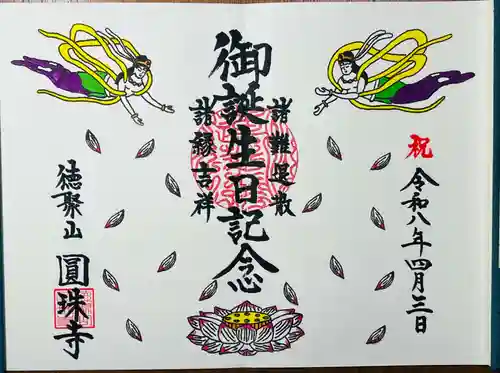 祝
令和八年四月三日
諸難退散
御誕生日記念
諸縁吉祥
徳聚山
圓珠寺